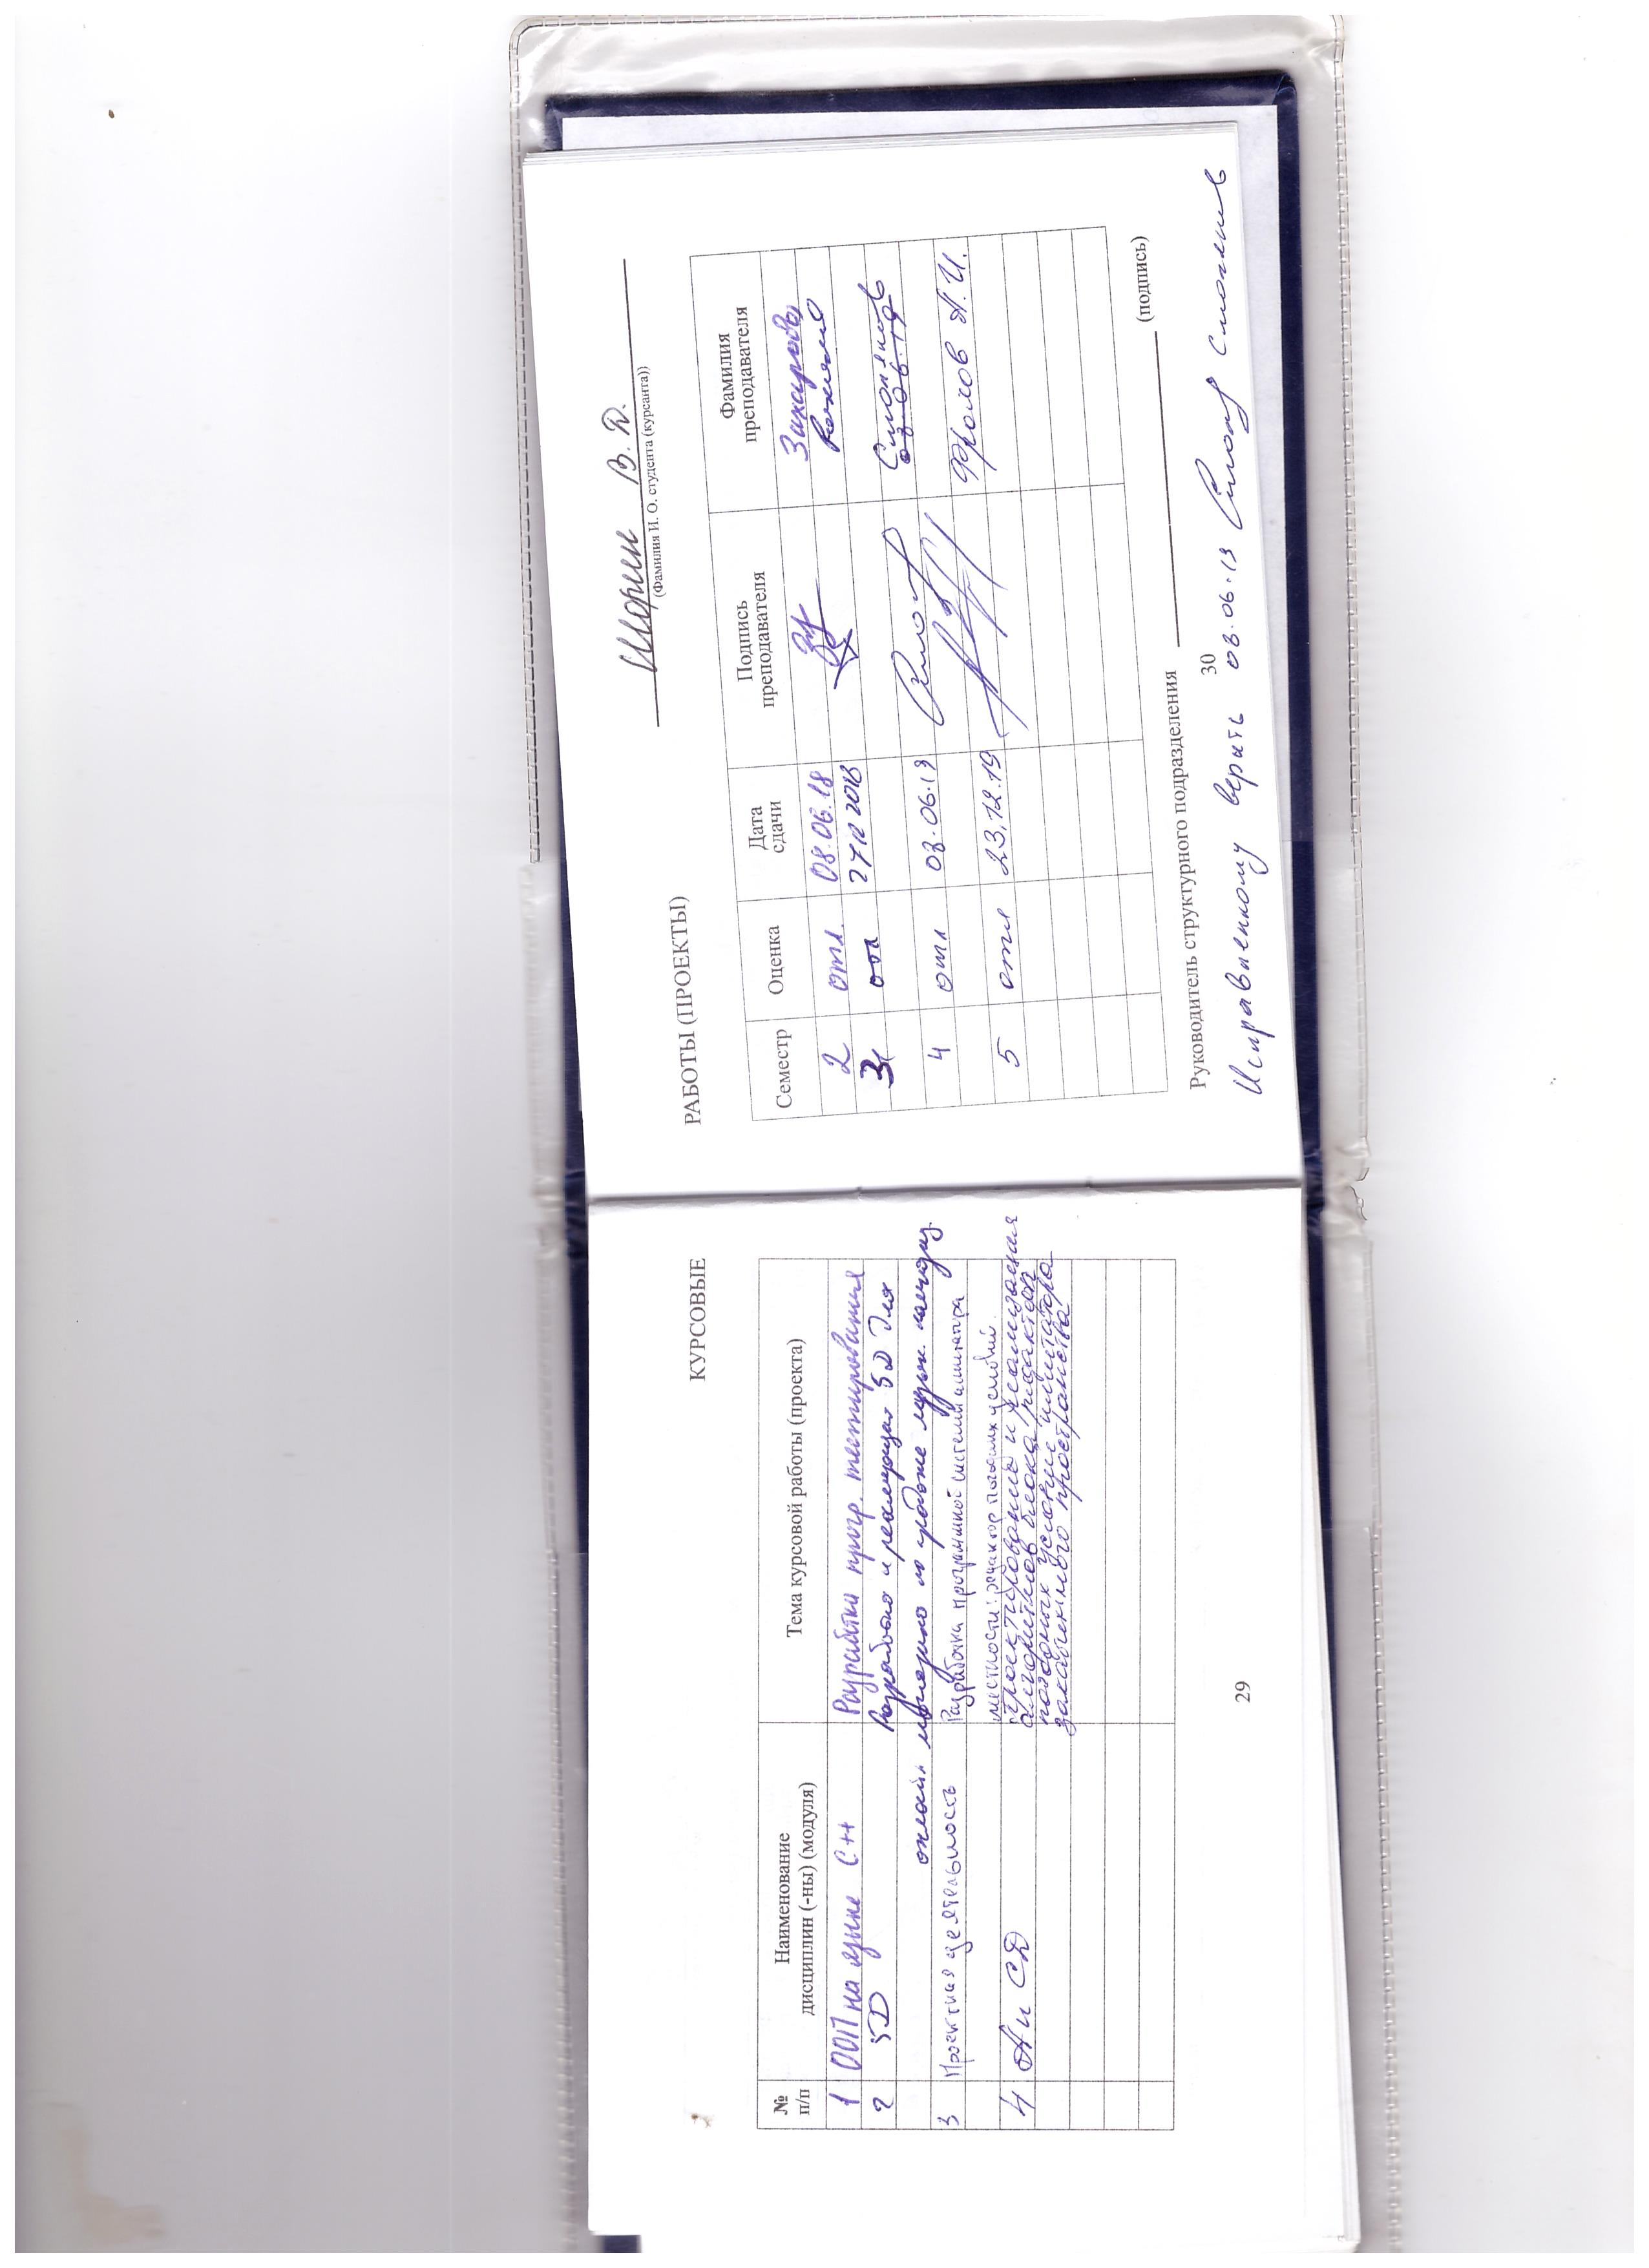 КУРСОВЫЕ
№ п/п
Наименование дисциплин (-ны) (модуля)
Тема курсовой работы (проекта)
1 ООП на языке C++ Разработка прогр. тестирования
2 БД Разработка и реализация БД для
онлайн магазина по продаже музык.
3 Проектная деятельность Разработка программной системы имитатора
местности: редактор погодных условий
4 А и СД Проектирование и реализация
алгоритмов блока редактор
погодных условие имитатора
закабинного пространства
29
Шорин В.Д.
(Фамилия И. О. студента (курсанта))
РАБОТЫ (ПРОЕКТЫ)
Семестр Оценка Дата сдачи Подпись преподавателя Фамилия преподавателя
2 отл. 08.06.18 Захарова
3 отл 27 12 2018
4 отл 03.06.19
03.06.19
5 отл 23.12.19 Фролов А.И.
Руководитель структурного подразделения
(подпись)
30
Исправленному верить 03.06.19